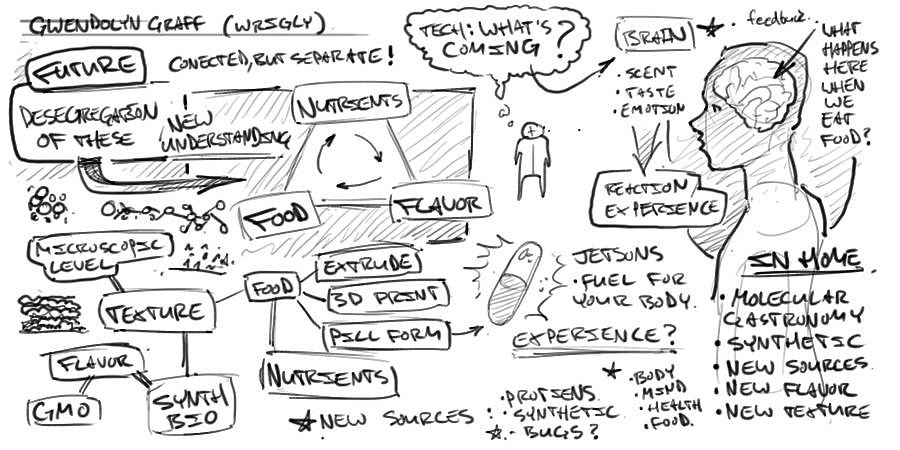 GWENDOLYN GRAFF (WRIGLY)
FUTURE
CONECTED, BUT SEPARATE!
DESEGREGATION
OF THESE
NEW
UNDERSTANDING
NUTRIENTS
FOOD
FLAVOR
TECH: WHAT'S
COMING?
BRAIN
feedback.
• SCENT
• TASTE
• EMOTION
REACTION
EXPERIENCE
WHAT
HAPPENS
HERE
WHEN
WE
EAT
FOOD?
MICROSCOPIC
LEVEL
TEXTURE
FLAVOR
GMO
SYNTH
BIO
FOOD
EXTRUDE
3D PRINT
PILL FORM
NUTRIENTS
NEW SOURCES
JETSONS
• FUEL FOR
YOUR BODY.
EXPERIENCE?
• PROTIENS
• SYNTHETIC
- BUGS?
• BODY
• MIND
• HEALTH
• FOOD.
IN HOME
• MOLECULAR
GASTRONOMY
• SYNTHETIC
• NEW SOURCES
• NEW FLAVOR
• NEW TEXTURE